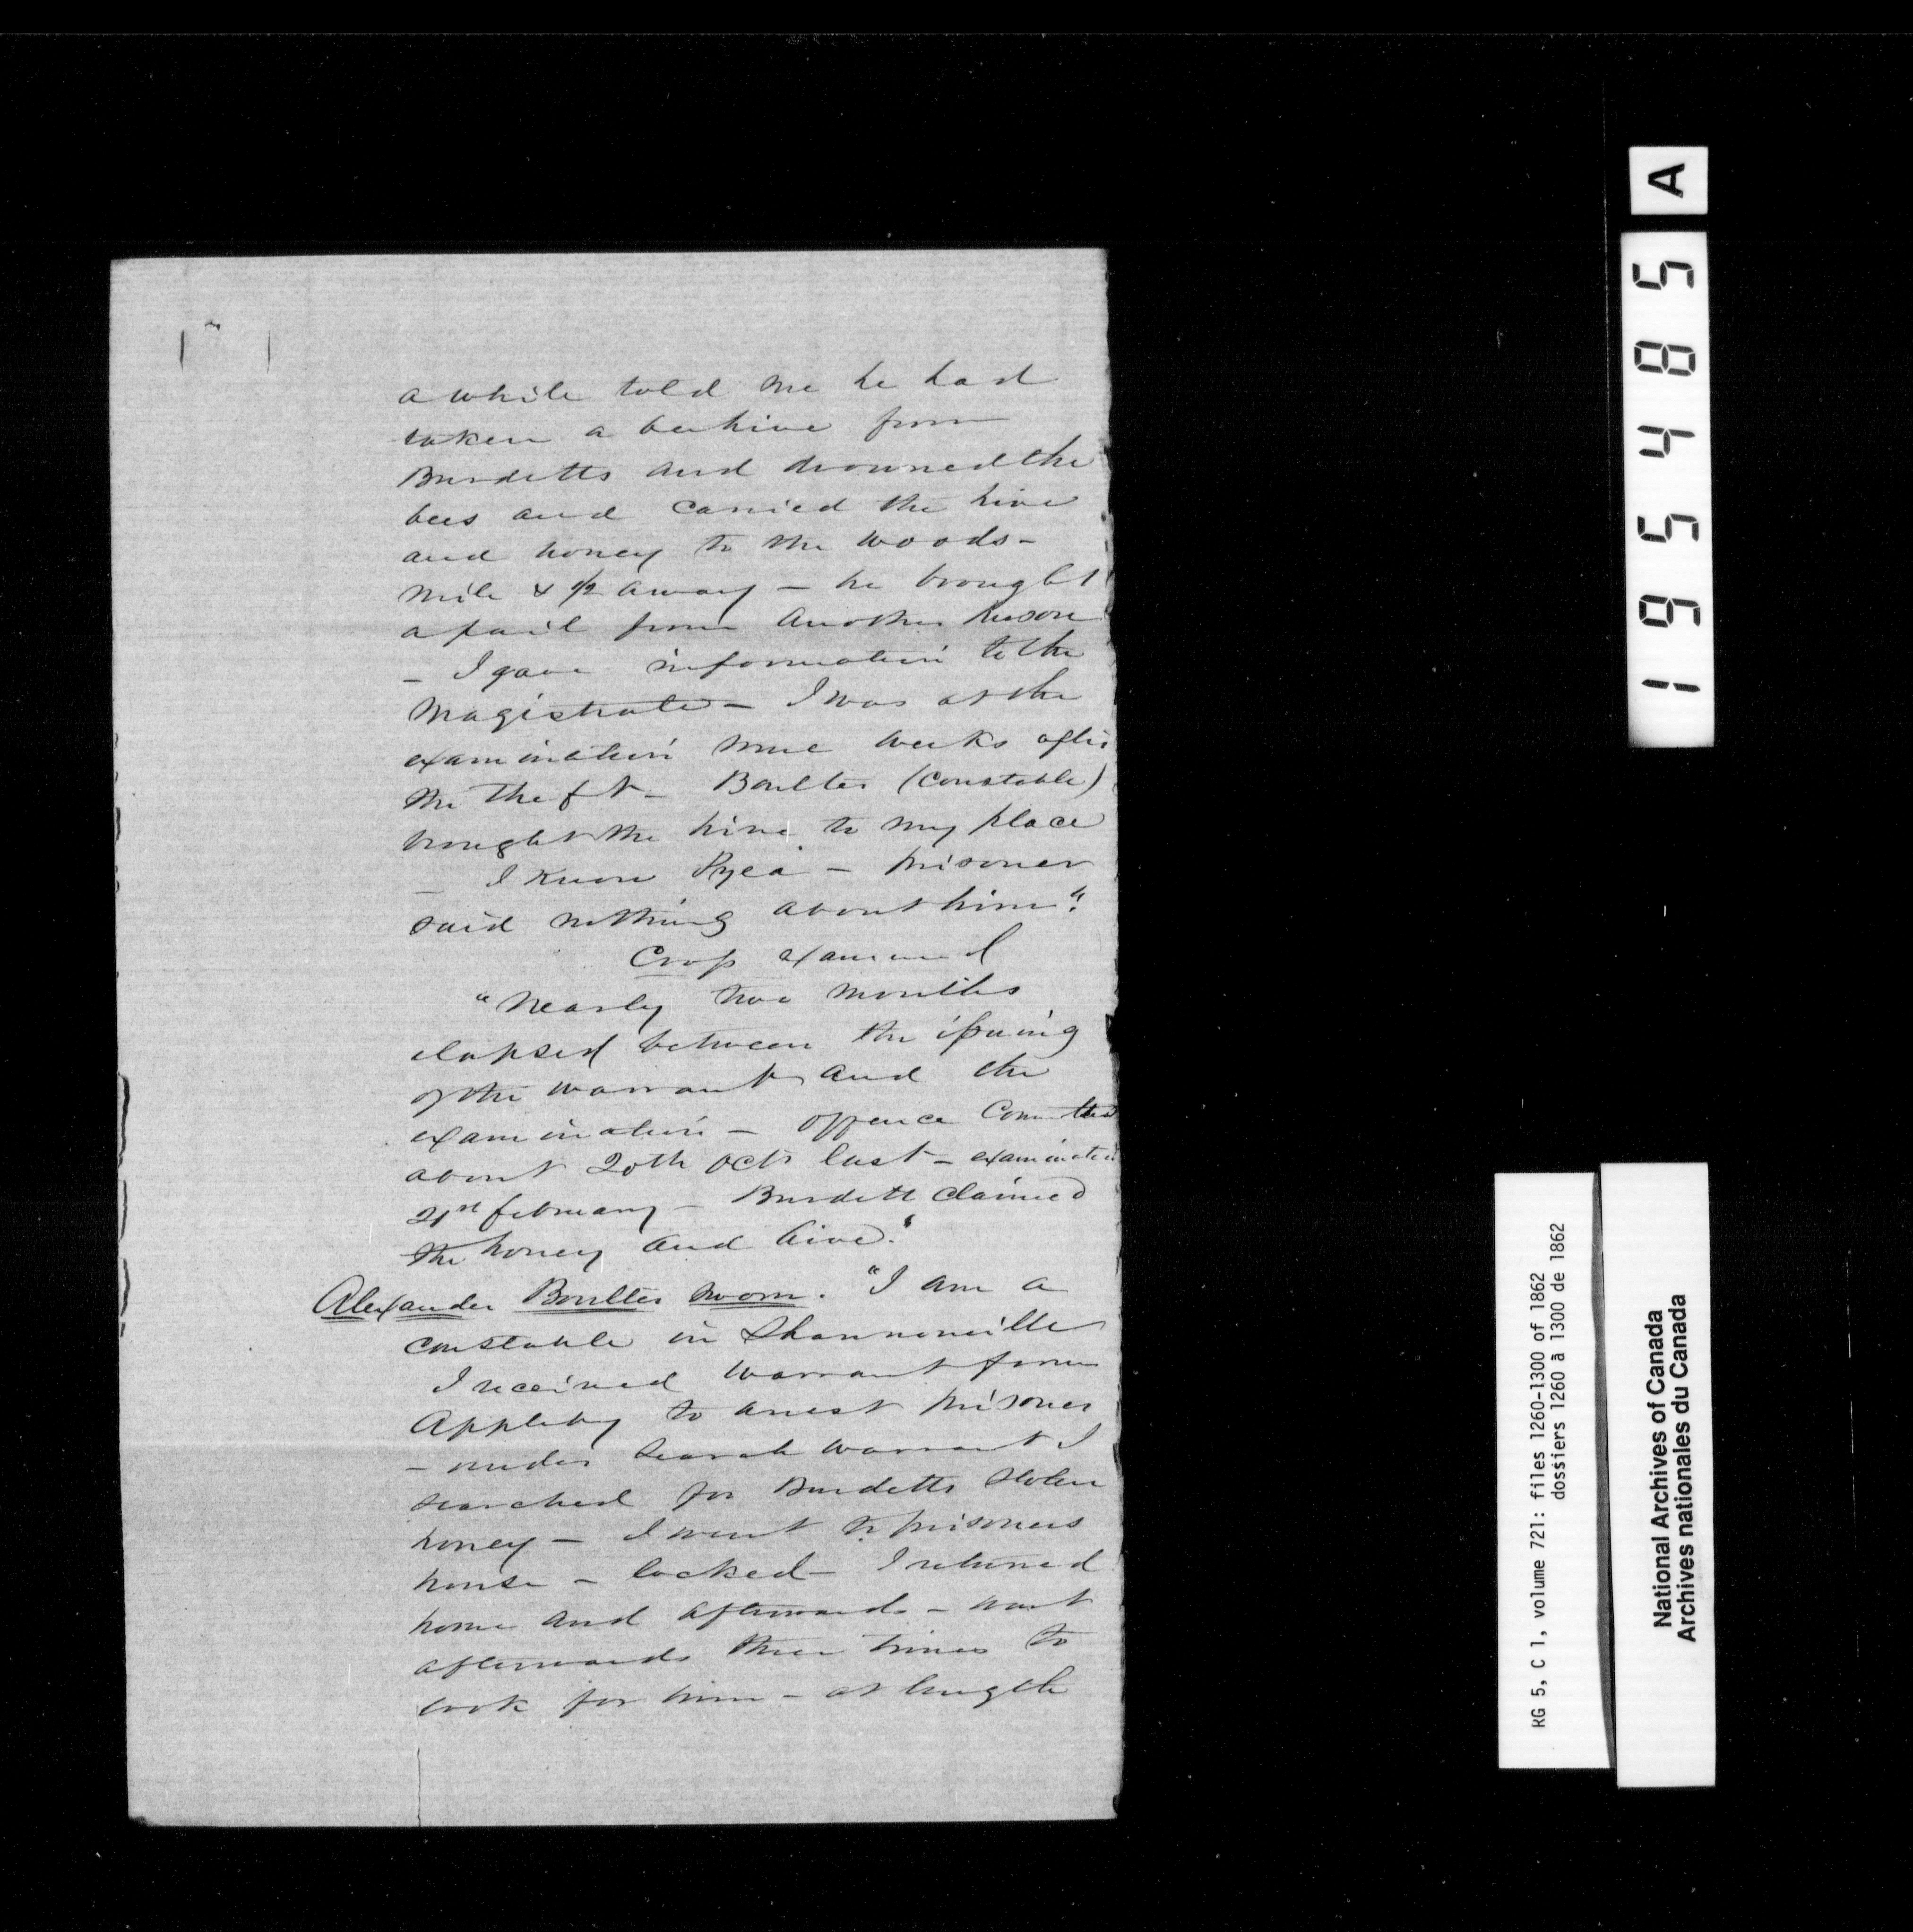 a while told me he had
taken a beehive from
Burdetts and drowned the
bees and carried the hive
and honey to the woods -
mile & 1/2 away - he brought
a pail from another house
- I gave information to the
Magistrate - I was at the
examination some weeks after
the theft - Boulter (Constable)
brought the hive to my place
- I know Pyea - prisoner
said nothing about him".
Cross examined
"Nearly two months
elapsed between the issuing
of the warrant and the
examination - offence Committed
about 20th Octr last - examination
21st february - Burdett claimed
the honey and hive."
Alexander Boulter sworn. "I am a
constable in Shannonville
I received warrant from
Appleby to arrest prisoner
- under search warrant I
searched for Burdetts stolen
honey - I went to prisoners
house - locked - I returned
home and afterwards - went
afterwards three times to
look for him - at length
195485
A
RG 5, C 1, volume 721: files 1260-1300 of 1862
dossiers 1260 à 1300 de 1862
National Archives of Canada
Archives nationales du Canada